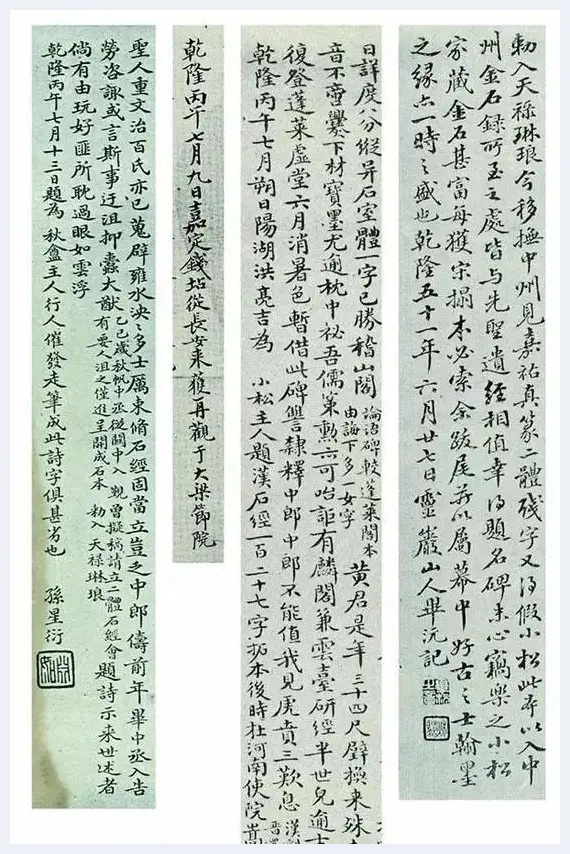 勅入天祿琳琅今移撫中州見嘉祐真篆二體殘字又得假小松此本以入中
州金石錄所至之處皆与先聖遺經相值幸得題名碑末心竊樂之小松
家藏金石甚富每獲宋搨本必索余跋尾并以屬幕中好古之士翰墨
之緣亦一時之盛也乾隆五十一年六月廿七日靈巖山人畢沅記
日詳度八分縱异石室體一字已勝稽山閣
論語碑較蓬萊閣本
由誨下多一女字
黃君是年三十四尺璧換來殊
音不啻爨下材寶墨尤逾枕中祕吾儒策勳亦可咍詎有麟閣兼雲臺研經半世兒逾古
復登蓬萊虛堂六月消暑色暫借此碑讐隸釋中郎中郎不能值我見虎賁三歎息
乾隆丙午七月朔日陽湖洪亮吉為 小松主人題漢石經一百二十七字拓本後時在河南使院
乾隆丙午七月九日嘉定錢坫從長安來獲再觀于大梁節院
聖人重文治百氏亦已蒐辟雍水泱泱多士厲束脩石經固當立豈之中郎儔前年畢中丞入告
勞咨諏或言斯事迂沮抑蠹大猷
乙巳歲秋帆中丞從關中入覲曾擬稿請立二體石經會
有要人沮之僅進呈開成石本 勅入天祿琳琅
題詩示來世述者
倘有由玩好匪所耽過眼如雲浮
乾隆丙午七月十三日題為 秋盦主人行人催發走筆成此詩字俱甚劣也 孫星衍